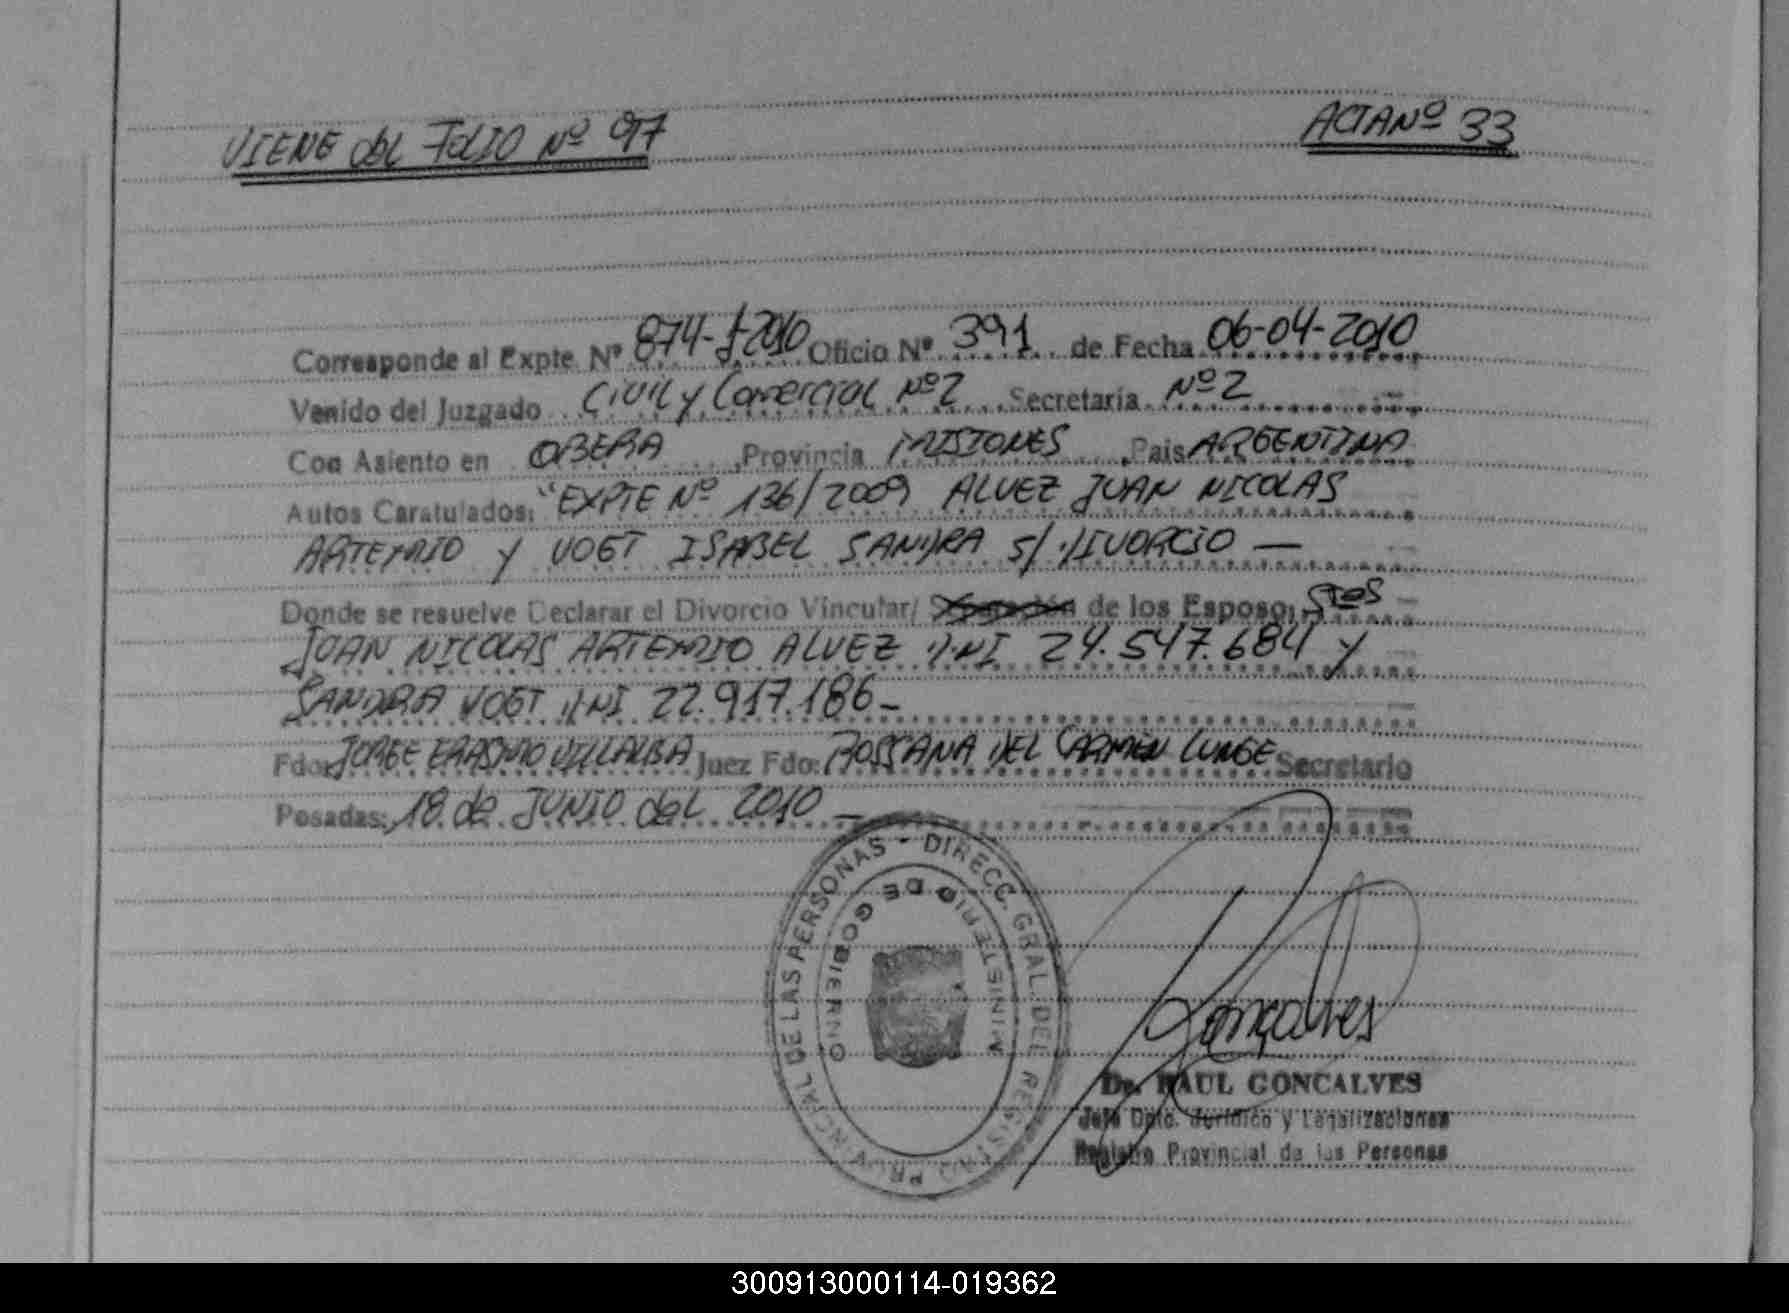 VIENE del FOLIO Nº 97
ACTA Nº 33
Corresponde al Expte Nº 874-J-2010 Oficio Nº 391 de Fecha 06-04-2010
Venido del Juzgado Civil y Comercial Nº 2 Secretaría Nº 2
Con Asiento en OBERA, Provincia MISIONES, Pais ARGENTINA
Autos Caratulados: "EXPTE Nº 136/2009 ALVEZ JUAN NICOLAS
ARTEMIO y VOGT ISABEL SANDRA s/ DIVORCIO —
Donde se resuelve Declarar el Divorcio Vincular/ Separación de los Esposo: Sres
JUAN NICOLAS ARTEMIO ALVEZ DNI 24.547.684 y
SANDRA VOGT DNI 22.917.186-
Fdo: JORGE ERASMO VILLALBA Juez Fdo: ROSSANA DEL CARMEN LUNGE Secretario
Posadas: 18 de JUNIO del 2010 —
DIRECC. GRAL. DEL REGIST. PROVINCIAL DE LAS PERSONAS -
MINISTERIO DE GOBIERNO
Goncalves
Dr. RAUL GONCALVES
Jefe Dpto. Jurídico y Legalizaciones
Registro Provincial de las Personas
300913000114-019362